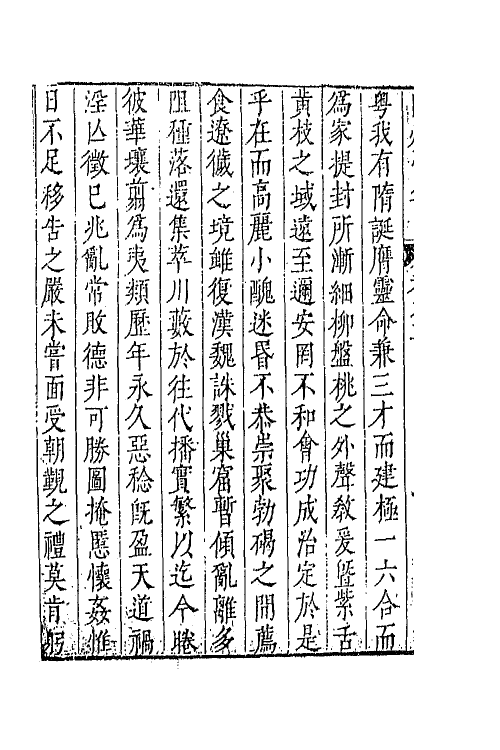 粤我有隋誕膺靈命兼三才而建極一六合而
爲家提封所漸細柳盤桃之外聲敎爰曁紫舌
黄枝之域遠至邇安罔不和會功成治定於是
乎在而高麗小醜迷昏不恭崇聚勃碣之間薦
食遼穢之境雖復漢魏誅戮巢窟暫傾亂離多
阻種落還集萃川藪於往代播實繁以迄今睠
彼華壤翦爲夷類歷年永久惡稔旣盈天道禍
淫亾徵已兆亂常敗德非可勝圖掩慝懷姦惟
日不足移告之嚴未嘗面受朝覲之禮莫肯躬